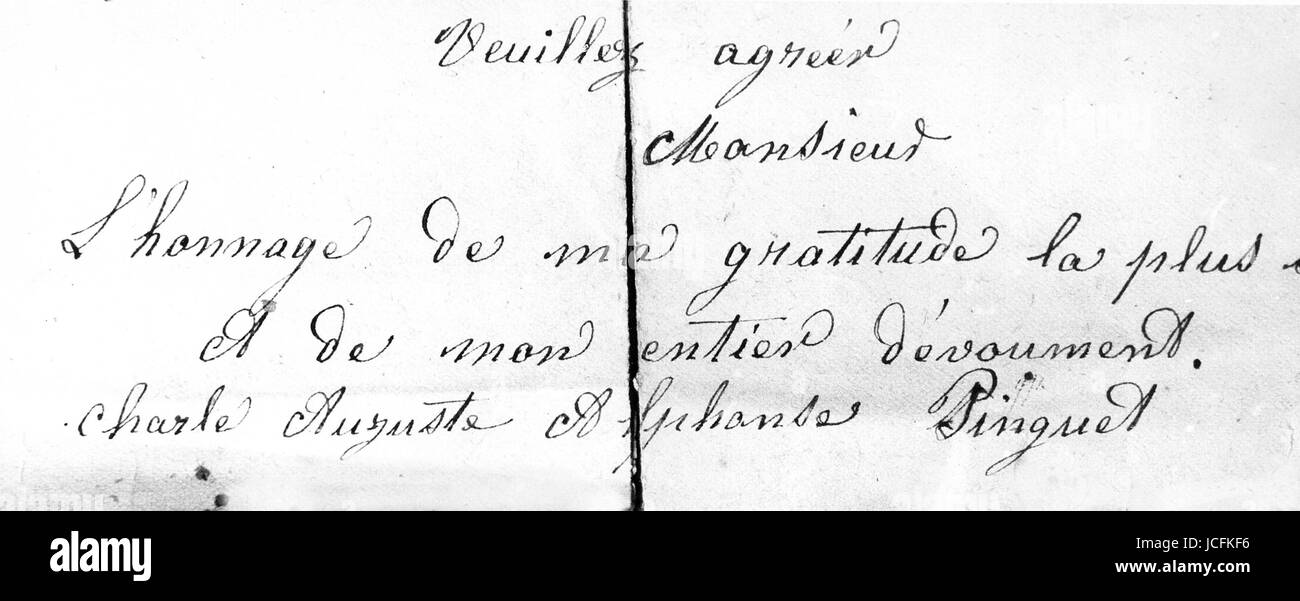 Veuillez agréer
Monsieur
L'honnage de ma gratitude la plus
et de mon entier dévoument.
Charle Auguste Alphonse Pinguet
alamy
Image ID: JCFKF6
www.alamy.com